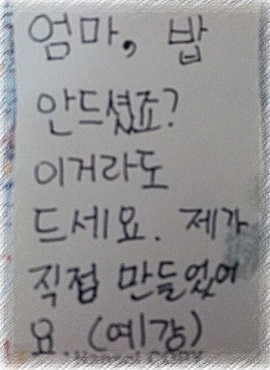 엄마, 밥
안드셨죠?
이거라도
드세요. 제가
직접 만들었어
요. (예강)